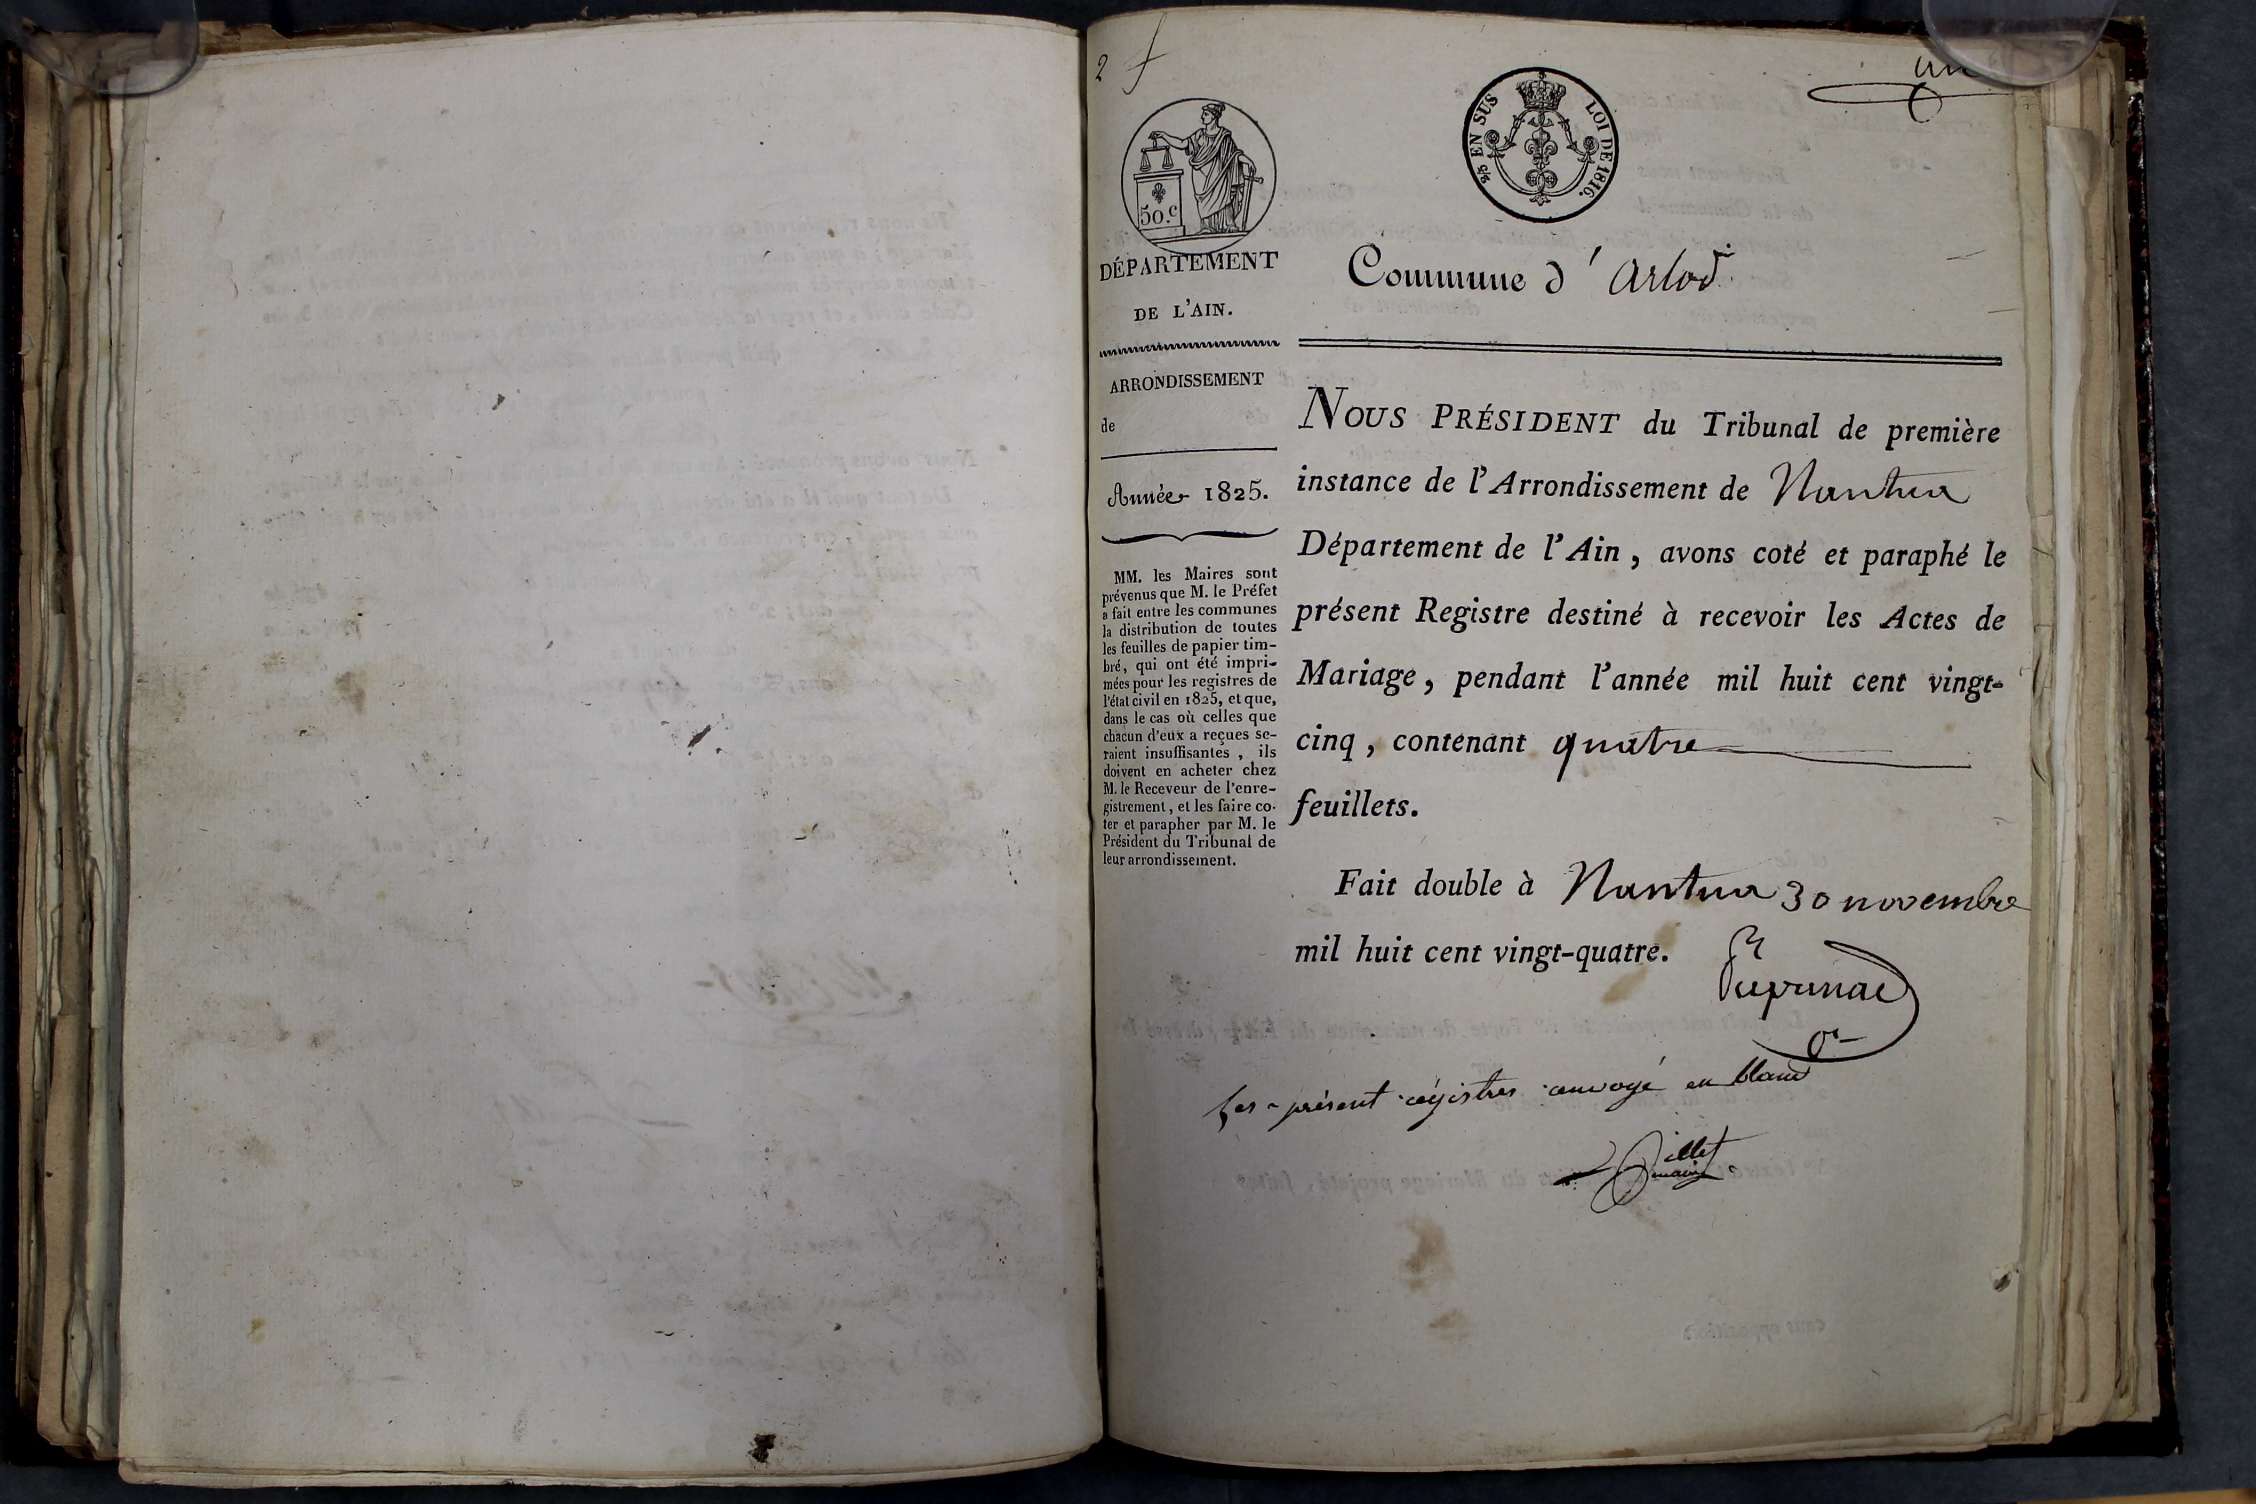 2
un
2/5 EN SUS LOI DE 1816.
50.c
DÉPARTEMENT
DE L'AIN.
ARRONDISSEMENT
de
Année 1825.
MM. les Maires sont
prévenus que M. le Préfet
a fait entre les communes
la distribution de toutes
les feuilles de papier tim-
bré, qui ont été impri-
mées pour les registres de
l'état civil en 1825, et que,
dans le cas où celles que
chacun d'eux a reçues se-
raient insuffisantes, ils
doivent en acheter chez
M. le Receveur de l'enre-
gistrement, et les faire co-
ter et parapher par M. le
Président du Tribunal de
leur arrondissement.
Commune d'arlod
NOUS PRÉSIDENT du Tribunal de première
instance de l'Arrondissement de Nantua
Département de l'Ain, avons coté et paraphé le
présent Registre destiné à recevoir les Actes de
Mariage, pendant l'année mil huit cent vingt-
cinq, contenant quatre
feuillets.
Fait double à Nantua 30 novembre
mil huit cent vingt-quatre.
présent régistres envoyé en blanc
maire